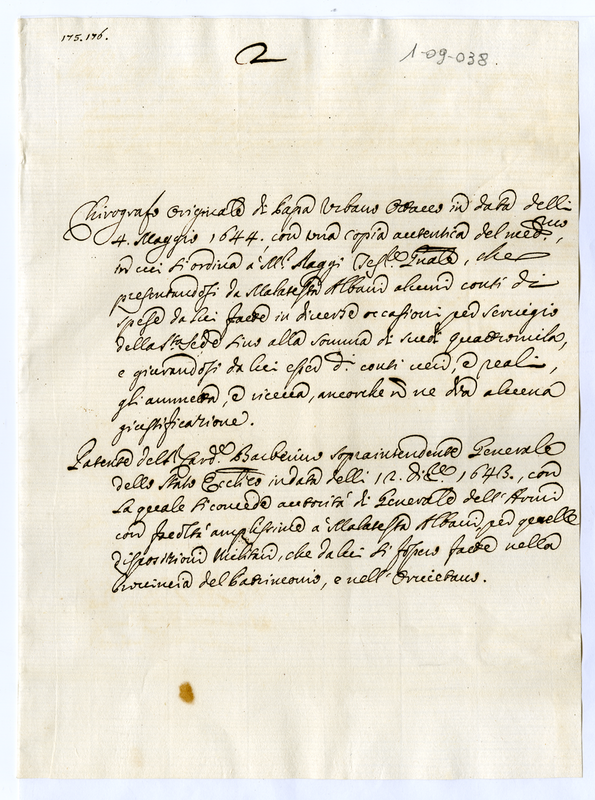 175.176.
2
1-09-038.
Chirografo originale di Papa Urbano Ottavo in data delli
4. Maggio 1644. con una copia autentica del med.mo,
in cui si ordina à Mr. Raggi Tes.re Gnale, che
presentandosi da Malatesta Albani alcuni conti di
spese da lui fatte in diverse occasioni per servigio
della Sta. Sede sino alla somma di scudi quattromila,
e giurandosi da lui esser di conti veri, e reali,
gli ammetta, e riceva, ancorche non ne dia alcuna
giustificazione.
Patente del Sr. Card.l Barberino sopraintendente Generale
dello Stato Ecclico in data delli 12. Dic.e 1643., con
la quale si concede autorità di Generale dell'Armi
con facoltà amplissime à Malatesta Albani per quelle
disposizioni militari, che da lui si fossero fatte nella
Provincia del Patrimonio, e nell'Orvietano.